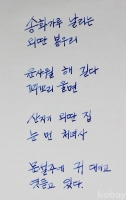 송화가루 날리는
외딴 봉우리
윤사월 해 길다
꾀꼬리 울면
산지기 외딴 집
눈 먼 처녀사
문설주에 귀 대이고
엿듣고 있다.
kobay